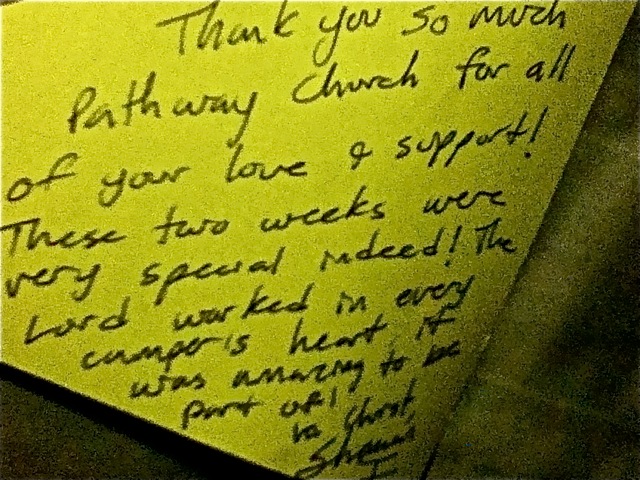 Thank you so much
Pathway Church for all
of your love & support!
These two weeks were
very special indeed! The
Lord worked in every
camper's heart, it
was amazing to be
part of!
In Christ,